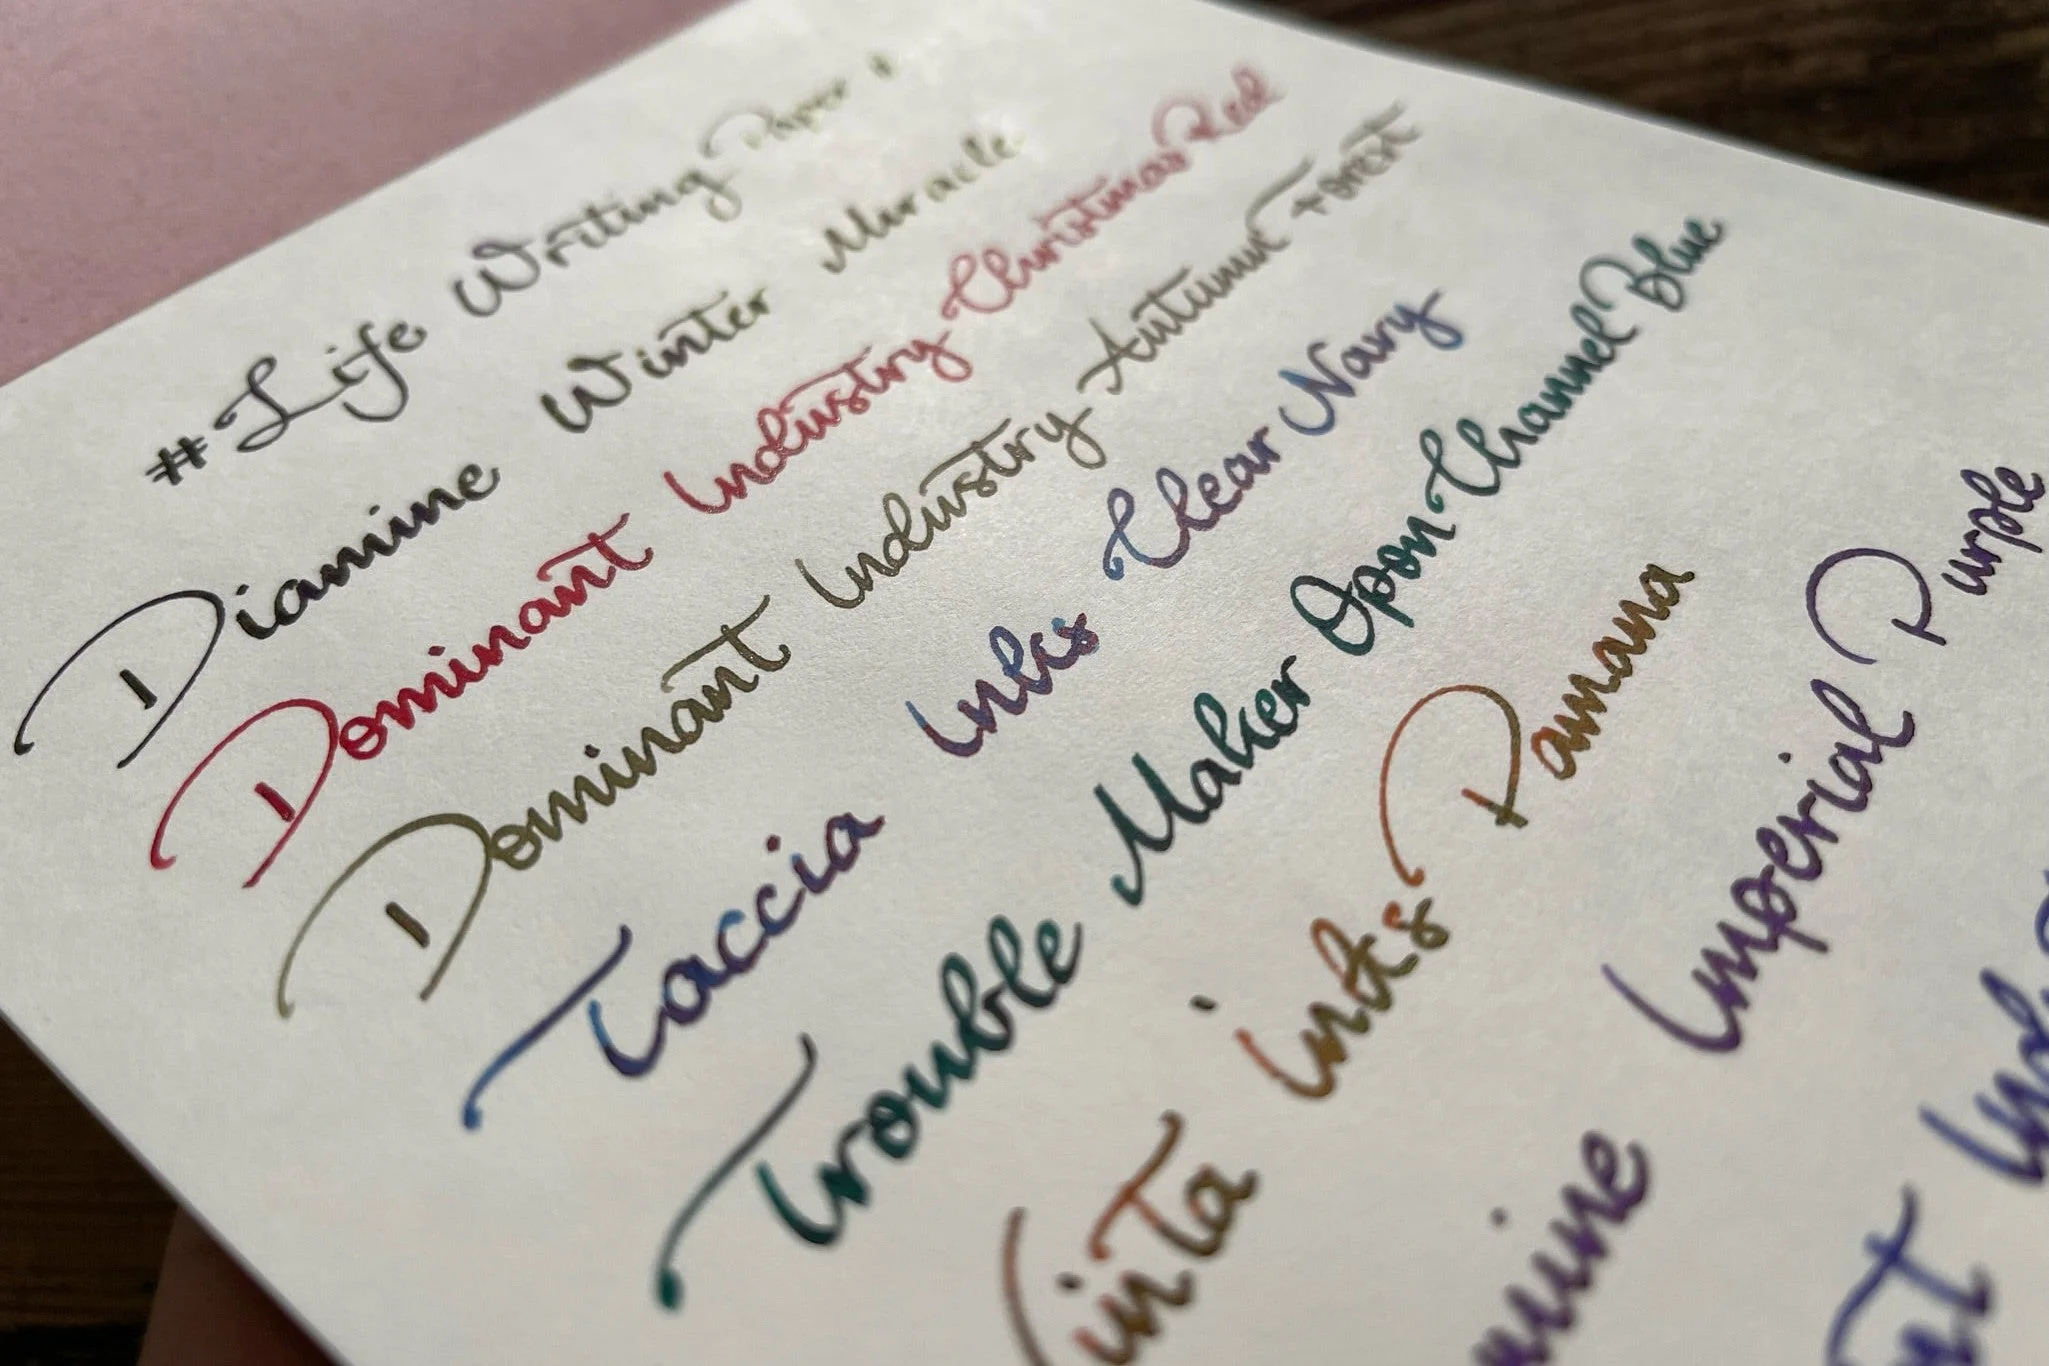 # Life Writing Paper #
Diamine Winter Miracle
Dominant Industry Christmas Red
Dominant Industry Autumn Forest
Taccia Inks Clear Navy
Trouble Maker Opon Channel Blue
inta inks Pamana
mine Imperial Purple
nt Indu